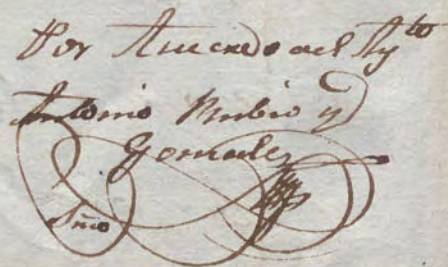 Por Acuerdo del Ay^to
Antonio Rubio y
Gonzalez
Srio